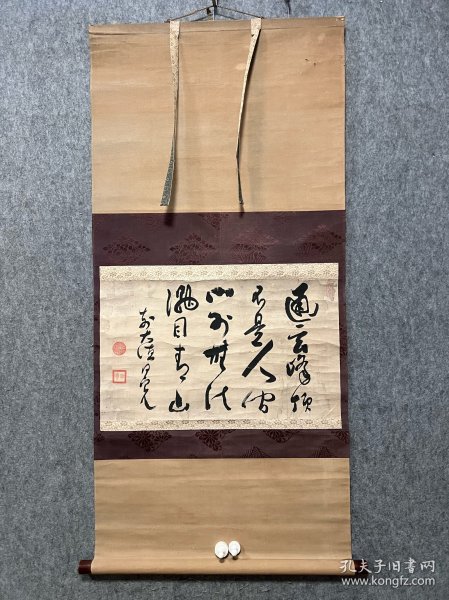 通玄峰頂
不是人間
心外無法
滿目青山
前大德
孔夫子旧书网
www.kongfz.com